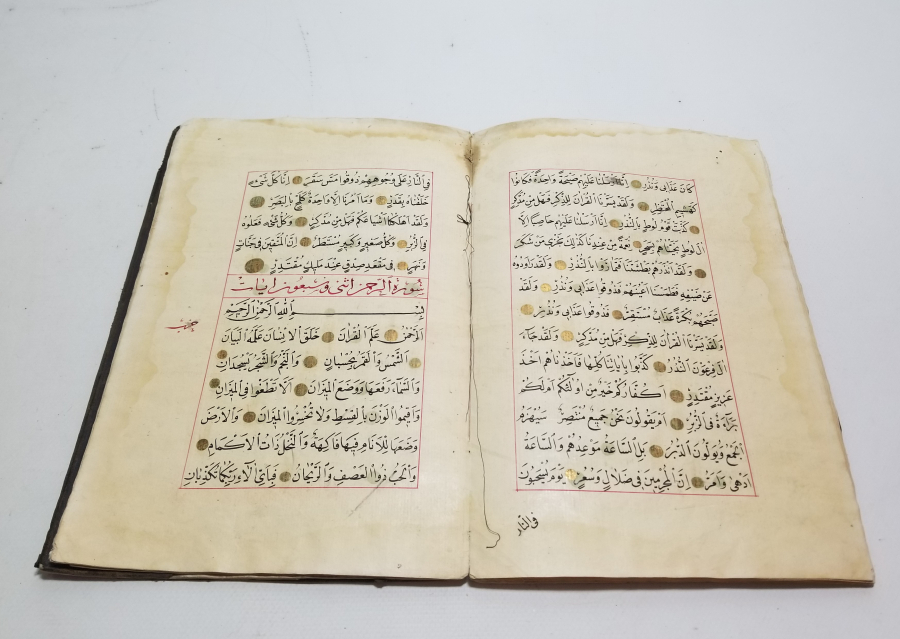 كَانَ عَذَابِي وَنُذُرِ اِنَّا اَرْسَلْنَا عَلَيْهِمْ صَيْحَةً وَاحِدَةً فَكَانُوا
كَهَشِيمِ الْمُحْتَظِرِ وَلَقَدْ يَسَّرْنَا الْقُرْاٰنَ لِلذِّكْرِ فَهَلْ مِنْ مُدَّكِرٍ
كَذَّبَتْ قَوْمُ لُوطٍ بِالنُّذُرِ اِنَّا اَرْسَلْنَا عَلَيْهِمْ حَاصِبًا اِلَّا
اٰلَ لُوطٍ نَجَّيْنَاهُمْ بِسَحَرٍ نِعْمَةً مِنْ عِنْدِنَا كَذٰلِكَ نَجْزِي مَنْ شَكَرَ
وَلَقَدْ اَنْذَرَهُمْ بَطْشَتَنَا فَتَمَارَوْا بِالنُّذُرِ وَلَقَدْ رَاوَدُوهُ
عَنْ ضَيْفِهِ فَطَمَسْنَا اَعْيُنَهُمْ فَذُوقُوا عَذَابِي وَنُذُرِ وَلَقَدْ
صَبَّحَهُمْ بُكْرَةً عَذَابٌ مُسْتَقِرٌّ فَذُوقُوا عَذَابِي وَنُذُرِ
وَلَقَدْ يَسَّرْنَا الْقُرْاٰنَ لِلذِّكْرِ فَهَلْ مِنْ مُدَّكِرٍ وَلَقَدْ جَاءَ
اٰلَ فِرْعَوْنَ النُّذُرُ كَذَّبُوا بِاٰيَاتِنَا كُلِّهَا فَاَخَذْنَاهُمْ اَخْذَ
عَزِيزٍ مُقْتَدِرٍ اَكُفَّارُكُمْ خَيْرٌ مِنْ اُولٰئِكُمْ اَمْ لَكُمْ
بَرَاءَةٌ فِي الزُّبُرِ اَمْ يَقُولُونَ نَحْنُ جَمِيعٌ مُنْتَصِرٌ سَيُهْزَمُ
الْجَمْعُ وَيُوَلُّونَ الدُّبُرَ بَلِ السَّاعَةُ مَوْعِدُهُمْ وَالسَّاعَةُ
اَدْهٰى وَاَمَرُّ اِنَّ الْمُجْرِمِينَ فِي ضَلَالٍ وَسُعُرٍ يَوْمَ يُسْحَبُونَ
فِي النَّارِ
فِي النَّارِ عَلٰى وُجُوهِهِمْ ذُوقُوا مَسَّ سَقَرَ اِنَّا كُلَّ شَيْءٍ
خَلَقْنَاهُ بِقَدَرٍ وَمَا اَمْرُنَا اِلَّا وَاحِدَةٌ كَلَمْحٍ بِالْبَصَرِ
وَلَقَدْ اَهْلَكْنَا اَشْيَاعَكُمْ فَهَلْ مِنْ مُدَّكِرٍ وَكُلُّ شَيْءٍ فَعَلُوهُ
فِي الزُّبُرِ وَكُلُّ صَغِيرٍ وَكَبِيرٍ مُسْتَطَرٌ اِنَّ الْمُتَّقِينَ فِي جَنَّاتٍ
وَنَهَرٍ فِي مَقْعَدِ صِدْقٍ عِنْدَ مَلِيكٍ مُقْتَدِرٍ
سُورَةُ الرَّحْمٰنِ اثنى وسبعون اٰيات
بِسْمِ اللّٰهِ الرَّحْمٰنِ الرَّحِيمِ
اَلرَّحْمٰنُ عَلَّمَ الْقُرْاٰنَ خَلَقَ الْاِنْسَانَ عَلَّمَهُ الْبَيَانَ
حزب
اَلشَّمْسُ وَالْقَمَرُ بِحُسْبَانٍ وَالنَّجْمُ وَالشَّجَرُ يَسْجُدَانِ
وَالسَّمَاءَ رَفَعَهَا وَوَضَعَ الْمِيزَانَ اَلَّا تَطْغَوْا فِي الْمِيزَانِ
وَاَقِيمُوا الْوَزْنَ بِالْقِسْطِ وَلَا تُخْسِرُوا الْمِيزَانَ وَالْاَرْضَ
وَضَعَهَا لِلْاَنَامِ فِيهَا فَاكِهَةٌ وَالنَّخْلُ ذَاتُ الْاَكْمَامِ
وَالْحَبُّ ذُو الْعَصْفِ وَالرَّيْحَانُ فَبِاَيِّ اٰلَاءِ رَبِّكُمَا تُكَذِّبَانِ